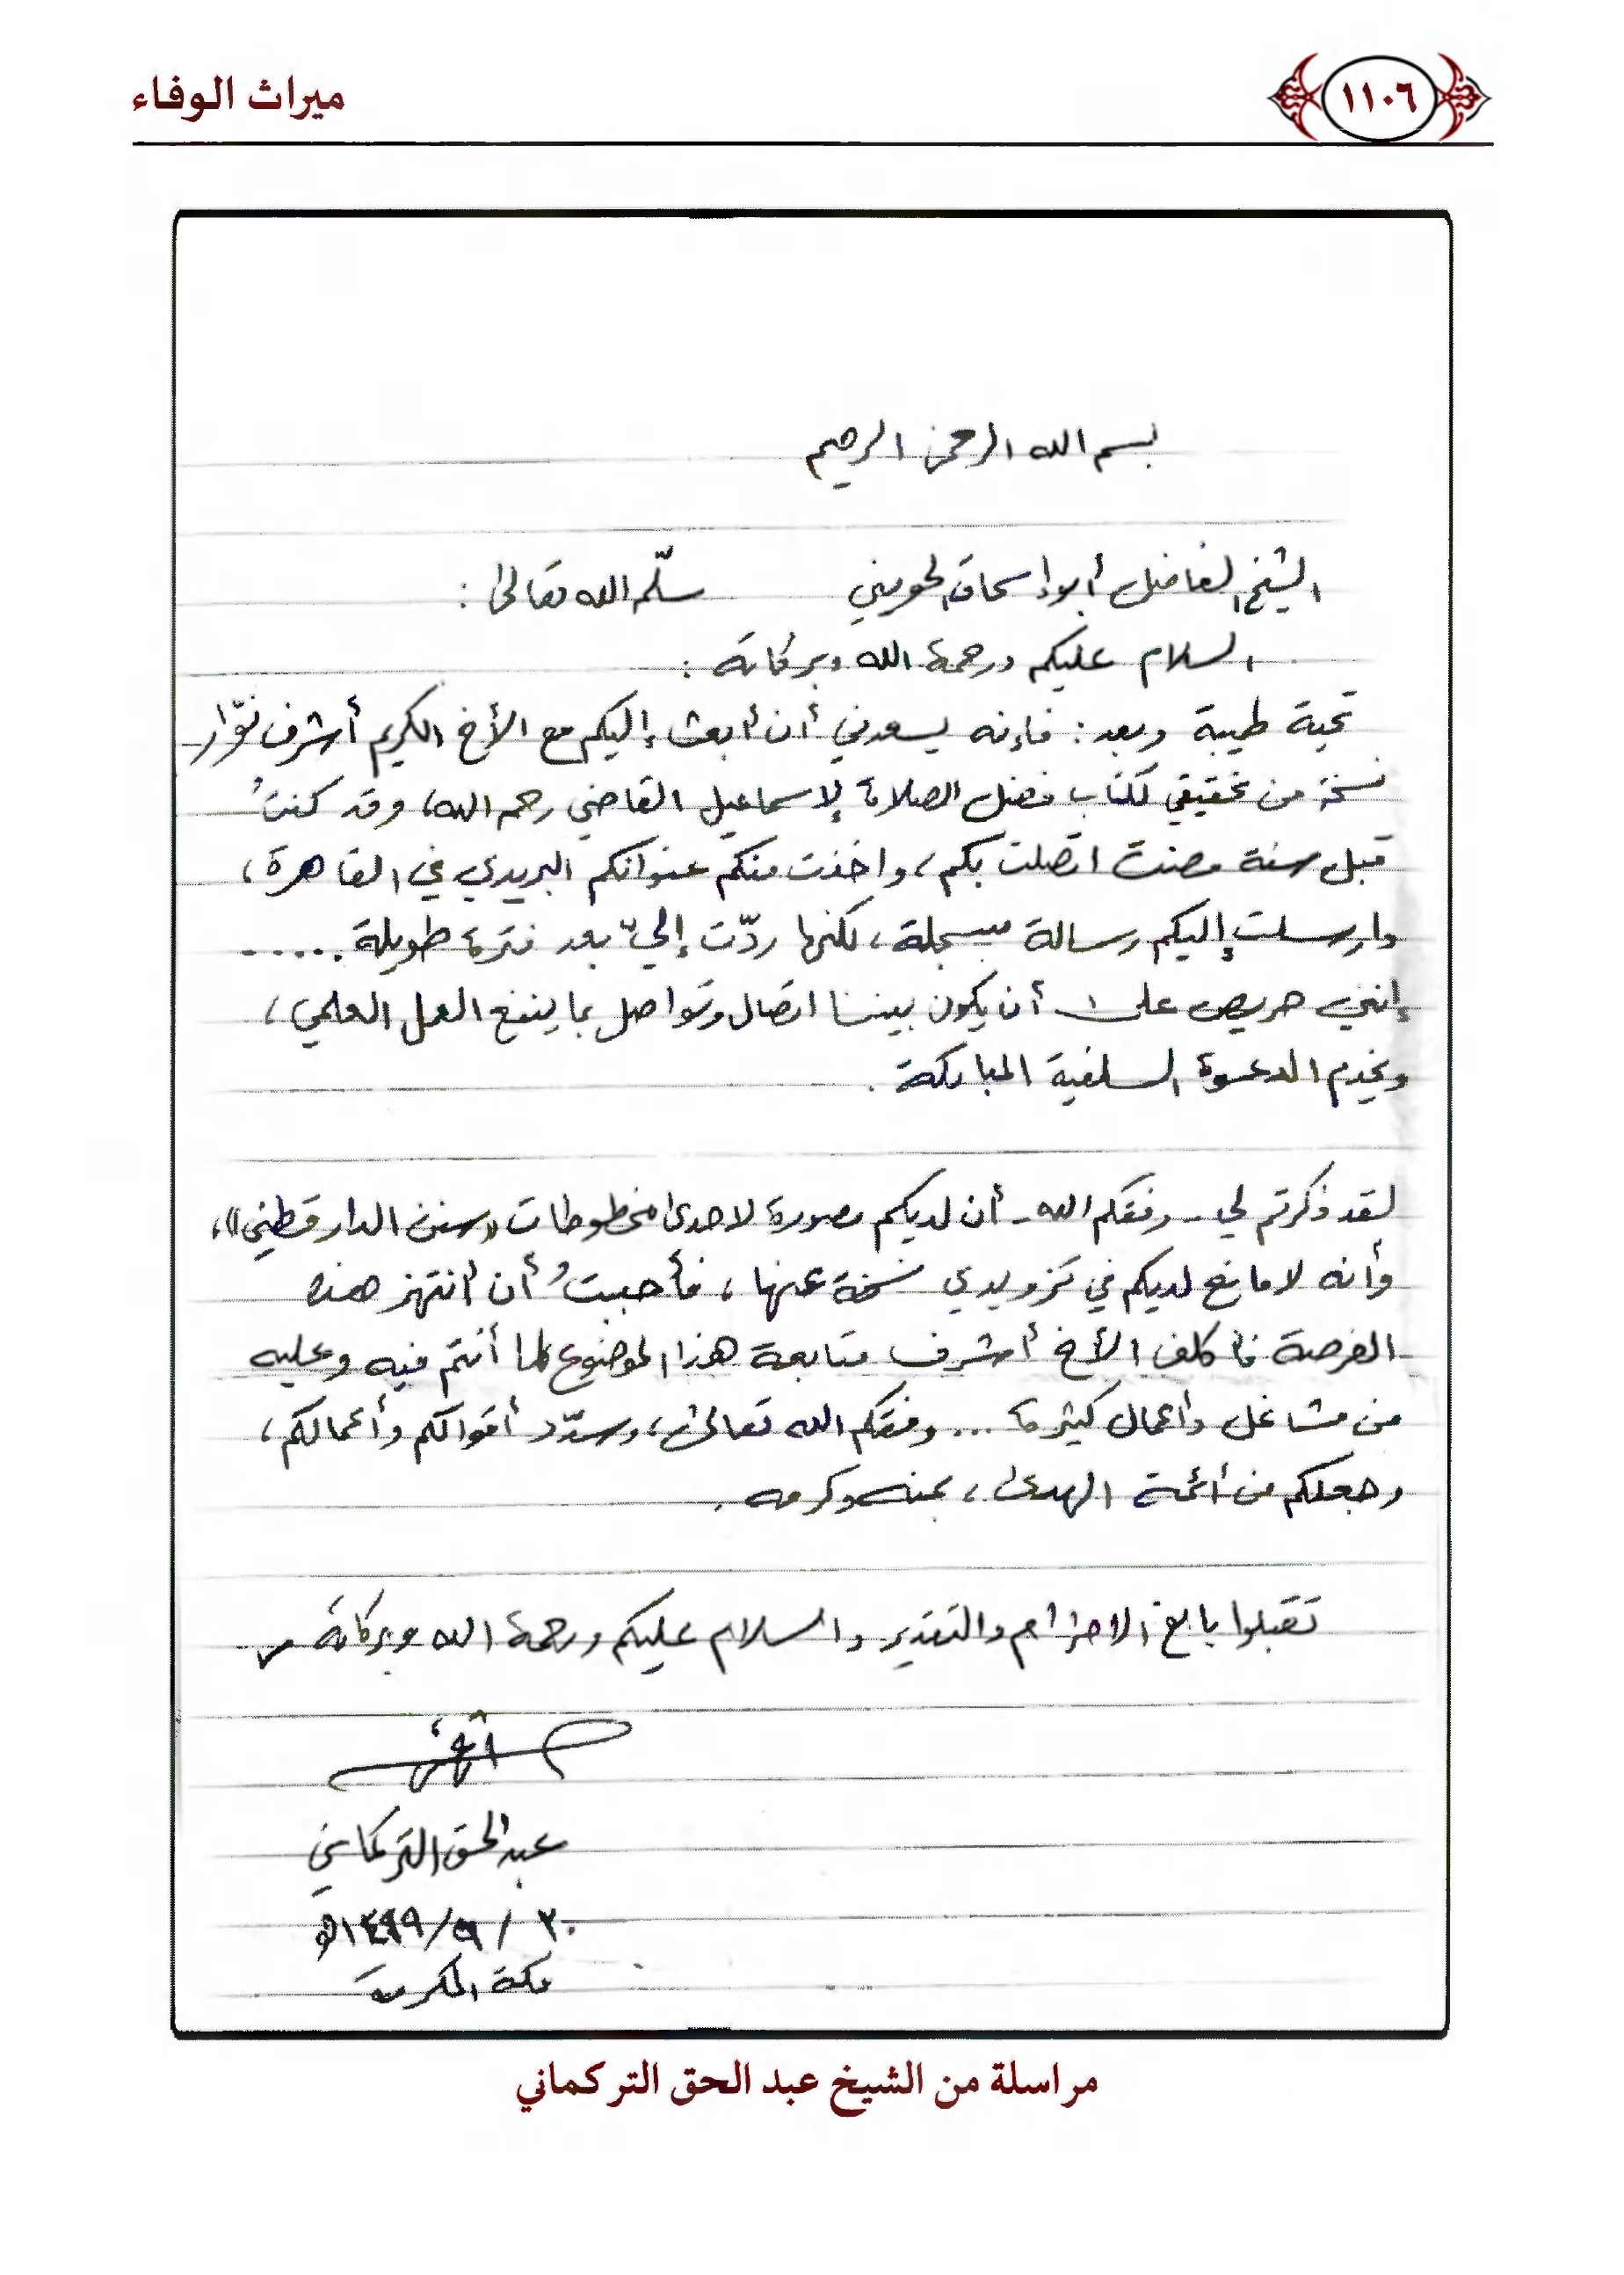 ١١٠٦
ميراث الوفاء
بسم الله الرحمن الرحيم
الشيخ الفاضل أبو إسحاق الحويني سلّمه الله تعالى :
السلام عليكم ورحمة الله وبركاته :
تحية طيبة وبعد : فإنه يسعدني أن أبعث إليكم مع الأخ الكريم أشرف نوّار
نسخة من تحقيقي لكتاب فضل الصلاة لإسماعيل القاضي رحمه الله، وقد كنتُ
قبل سنة مضت اتصلت بكم، واخذت منكم عنوانكم البريدي في القاهرة،
وارسلت إليكم رسالة مسجلة، لكنها ردّت إليّ بعد فترة طويلة .....
إنني حريص على أن يكون بيننا اتصال وتواصل بما ينفع العمل العلمي،
ويخدم الدعوة السلفية المباركة .
لقد ذكرتم لي - وفقكم الله - أن لديكم مصورة لاحدى مخطوطات «سنن الدارقطني»،
وأنه لا مانع لديكم في تزويدي نسخة عنها، فأحببتُ أن أنتهز هذه
الفرصة فأكلف الأخ أشرف متابعة هذا الموضوع لما أنتم فيه وعليه
من مشاغل وأعمال كثيرة ... وفقكم الله تعالى، وسدّد أقوالكم وأعمالكم،
وجعلكم من أئمة الهدى، بمنه وكرمه .
تقبلوا بالغ الاحترام والتقدير والسلام عليكم ورحمة الله وبركاته
عبد الحق التركماني
٢٠ / ٩ / ١٤١٩هـ
مكة المكرمة
مراسلة من الشيخ عبد الحق التركماني